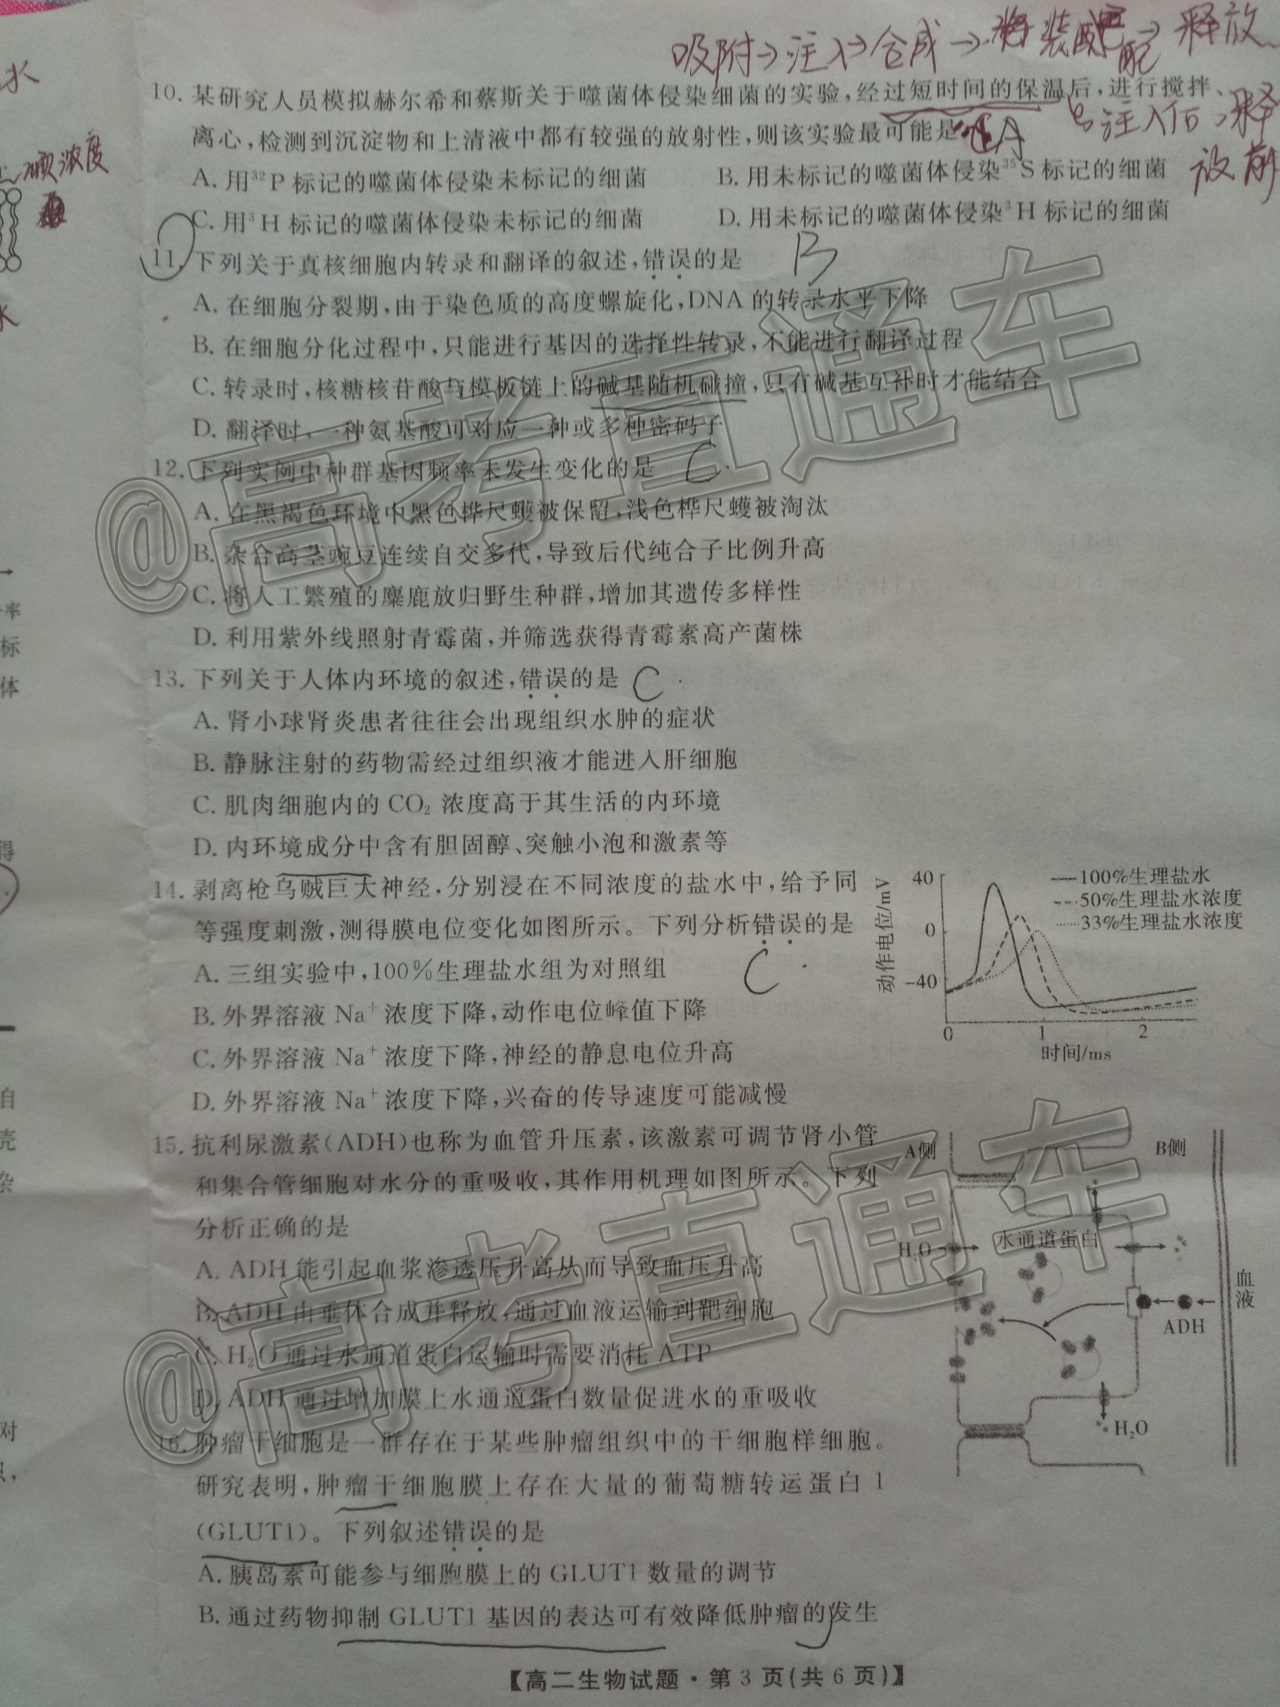 吸附→注入→合成→装配→释放
水
10. 某研究人员模拟赫尔希和蔡斯关于噬菌体侵染细菌的实验,经过短时间的保温后,进行搅拌、
离心,检测到沉淀物和上清液中都有较强的放射性,则该实验最可能是 A
注入后,释
放前
顺浓度
A. 用³²P 标记的噬菌体侵染未标记的细菌 B. 用未标记的噬菌体侵染³⁵S 标记的细菌
C. 用³H 标记的噬菌体侵染未标记的细菌 D. 用未标记的噬菌体侵染³H 标记的细菌
11. 下列关于真核细胞内转录和翻译的叙述,错误的是 B
A. 在细胞分裂期,由于染色质的高度螺旋化,DNA 的转录水平下降
B. 在细胞分化过程中,只能进行基因的选择性转录,不能进行翻译过程
C. 转录时,核糖核苷酸与模板链上的碱基随机碰撞,只有碱基互补时才能结合
D. 翻译时,一种氨基酸可对应一种或多种密码子
12. 下列实例中种群基因频率未发生变化的是 C
A. 在黑褐色环境中黑色桦尺蠖被保留,浅色桦尺蠖被淘汰
B. 杂合高茎豌豆连续自交多代,导致后代纯合子比例升高
C. 将人工繁殖的麋鹿放归野生种群,增加其遗传多样性
D. 利用紫外线照射青霉菌,并筛选获得青霉素高产菌株
13. 下列关于人体内环境的叙述,错误的是 C
A. 肾小球肾炎患者往往会出现组织水肿的症状
B. 静脉注射的药物需经过组织液才能进入肝细胞
C. 肌肉细胞内的 CO₂ 浓度高于其生活的内环境
D. 内环境成分中含有胆固醇、突触小泡和激素等
14. 剥离枪乌贼巨大神经,分别浸在不同浓度的盐水中,给予同
等强度刺激,测得膜电位变化如图所示。下列分析错误的是
C
A. 三组实验中,100%生理盐水组为对照组
B. 外界溶液 Na⁺ 浓度下降,动作电位峰值下降
C. 外界溶液 Na⁺ 浓度下降,神经的静息电位升高
D. 外界溶液 Na⁺ 浓度下降,兴奋的传导速度可能减慢
动作电位/mV
40
0
-40
100%生理盐水
50%生理盐水浓度
33%生理盐水浓度
0 1 2
时间/ms
15. 抗利尿激素(ADH)也称为血管升压素,该激素可调节肾小管
和集合管细胞对水分的重吸收,其作用机理如图所示。下列
分析正确的是
A. ADH 能引起血浆渗透压升高从而导致血压升高
B. ADH 由垂体合成并释放,通过血液运输到靶细胞
C. H₂O 通过水通道蛋白运输时需要消耗 ATP
D. ADH 通过增加膜上水通道蛋白数量促进水的重吸收
A侧
B侧
H₂O
水通道蛋白
血液
ADH
H₂O
16. 肿瘤干细胞是一群存在于某些肿瘤组织中的干细胞样细胞。
研究表明,肿瘤干细胞膜上存在大量的葡萄糖转运蛋白 1
(GLUT1)。下列叙述错误的是
A. 胰岛素可能参与细胞膜上的 GLUT1 数量的调节
B. 通过药物抑制 GLUT1 基因的表达可有效降低肿瘤的发生
【高二生物试题·第 3 页(共 6 页)】
@高考直通车
@高考直通车
率
标
体
得
自
壳
杂
对